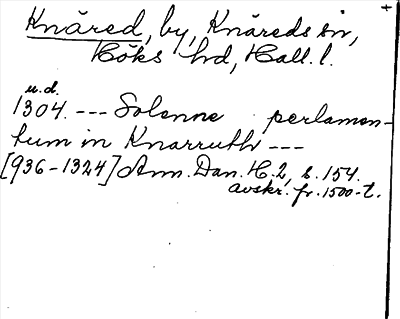 Knäred, by, Knäreds sn,
Höks hd, Hall. l.
u.d.
1304. --- Solenne perlamen-
tum in Knarruth ---
[936-1324] Ann. Dan. H. 2, s. 154.
avskr. fr. 1500-t.